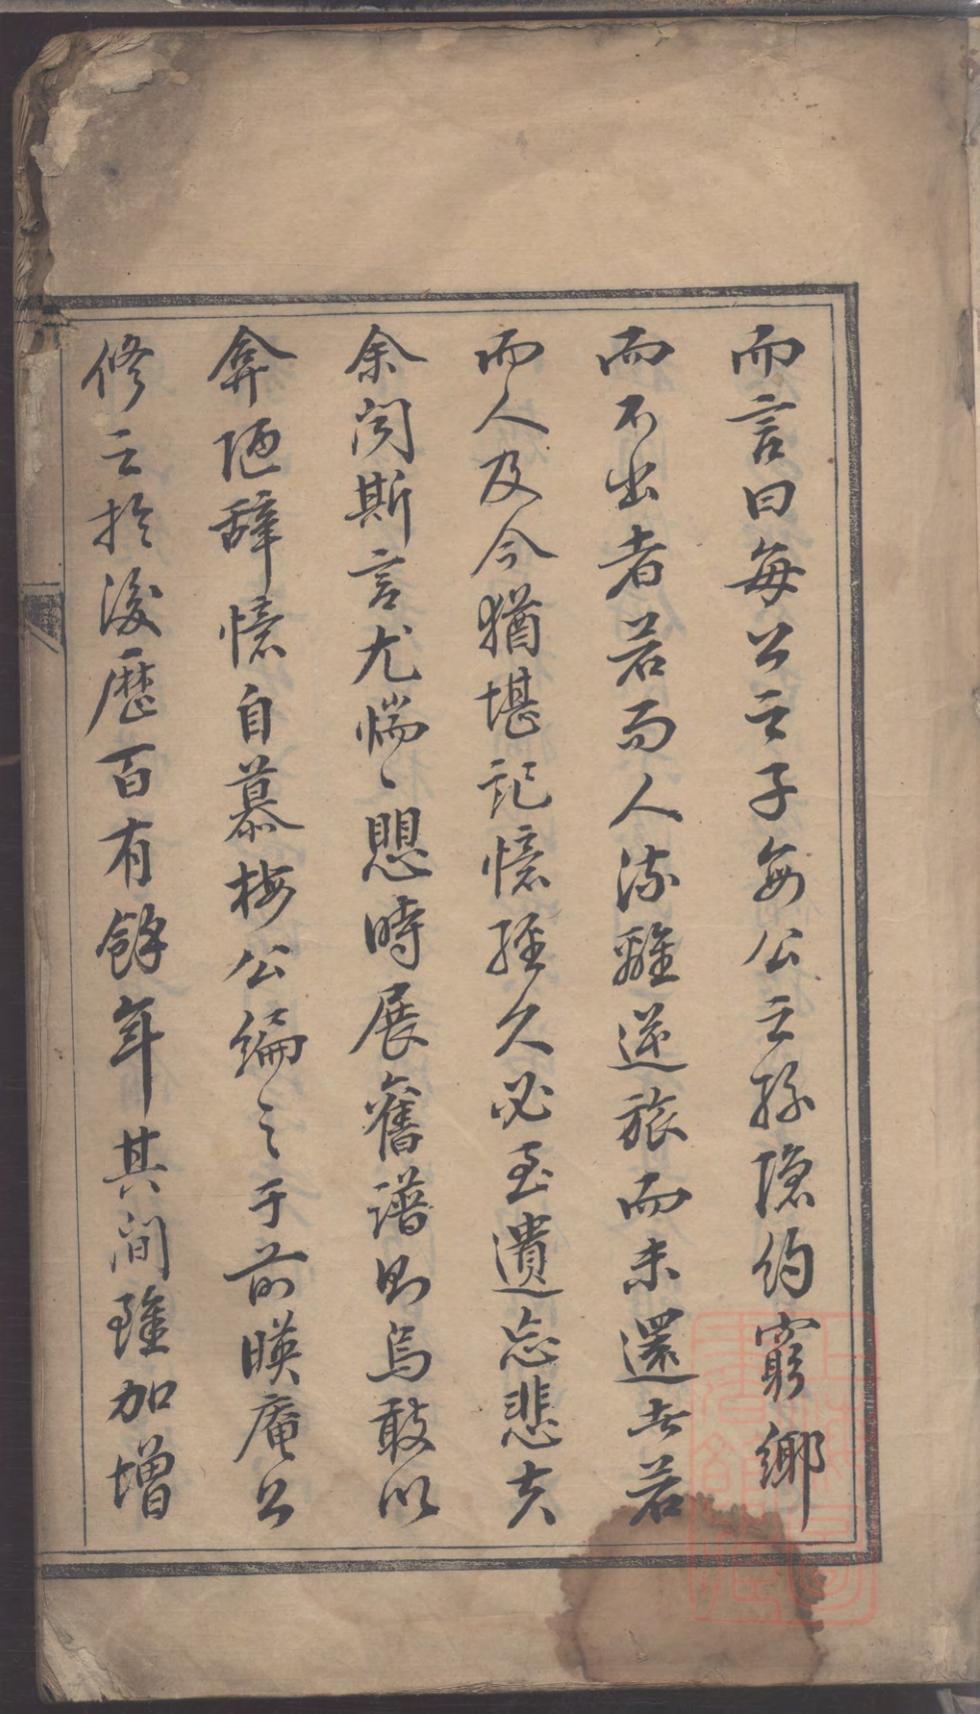 而言曰每公之子每公之孫隱約窮鄉
而不出者若而人流離逆旅而未還者若
而人及今猶堪記憶經久必至遺忘悲夫
余聞斯言尤惴〻思時展舊譜則烏敢以
弇陋辭憶自慕梅公編之于前暎庵公
修之於後歷百有餘年其間雖加增